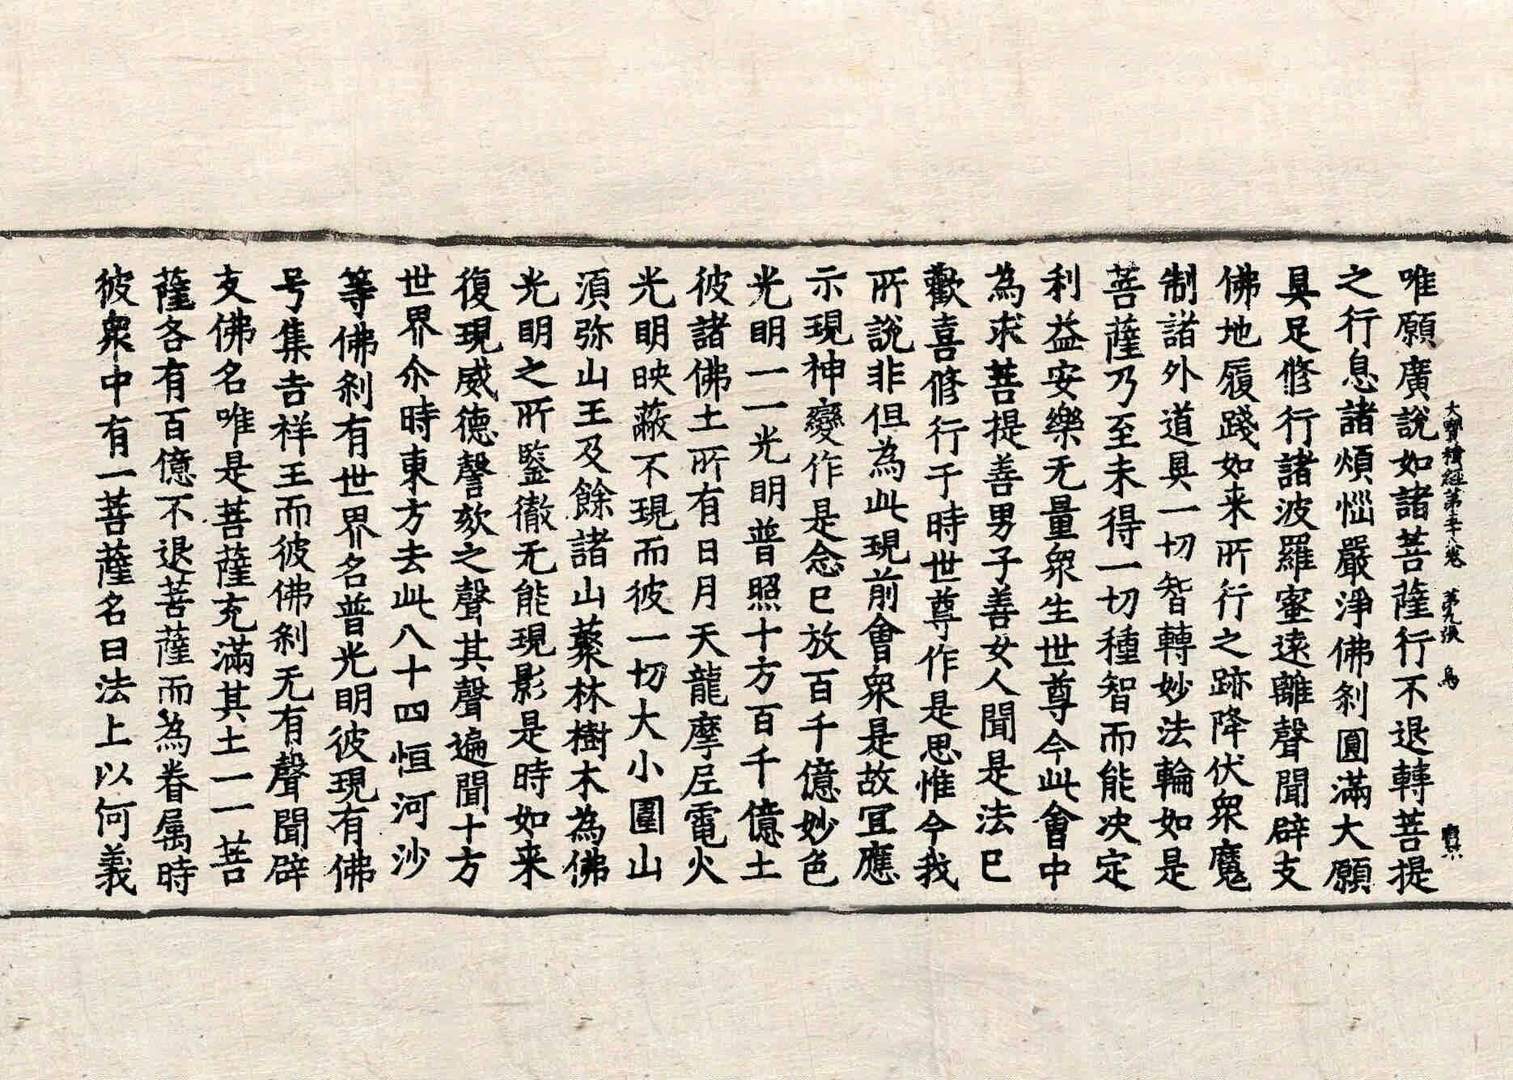 大寶積經第五十卷 第九張 鳥
唯願廣說如諸菩薩行不退轉菩提
之行息諸煩惱嚴淨佛剎圓滿大願
具足修行諸波羅蜜遠離聲聞辟支
佛地履踐如来所行之跡降伏衆魔
制諸外道具一切智轉妙法輪如是
菩薩乃至未得一切種智而能决定
利益安樂无量衆生世尊今此會中
為求菩提善男子善女人聞是法已
歡喜修行于時世尊作是思惟今我
所說非但為此現前會衆是故冝應
示現神變作是念已放百千億妙色
光明一一光明普照十方百千億土
彼諸佛土所有日月天龍摩尼電火
光明映蔽不現而彼一切大小圍山
須弥山王及餘諸山藂林樹木為佛
光明之所鑒徹无能現影是時如来
復現威德謦欬之聲其聲遍聞十方
世界尒時東方去此八十四恒河沙
等佛剎有世界名普光明彼現有佛
号集吉祥王而彼佛剎无有聲聞辟
支佛名唯是菩薩充滿其土一一菩
薩各有百億不退菩薩而為眷属時
彼衆中有一菩薩名曰法上以何義